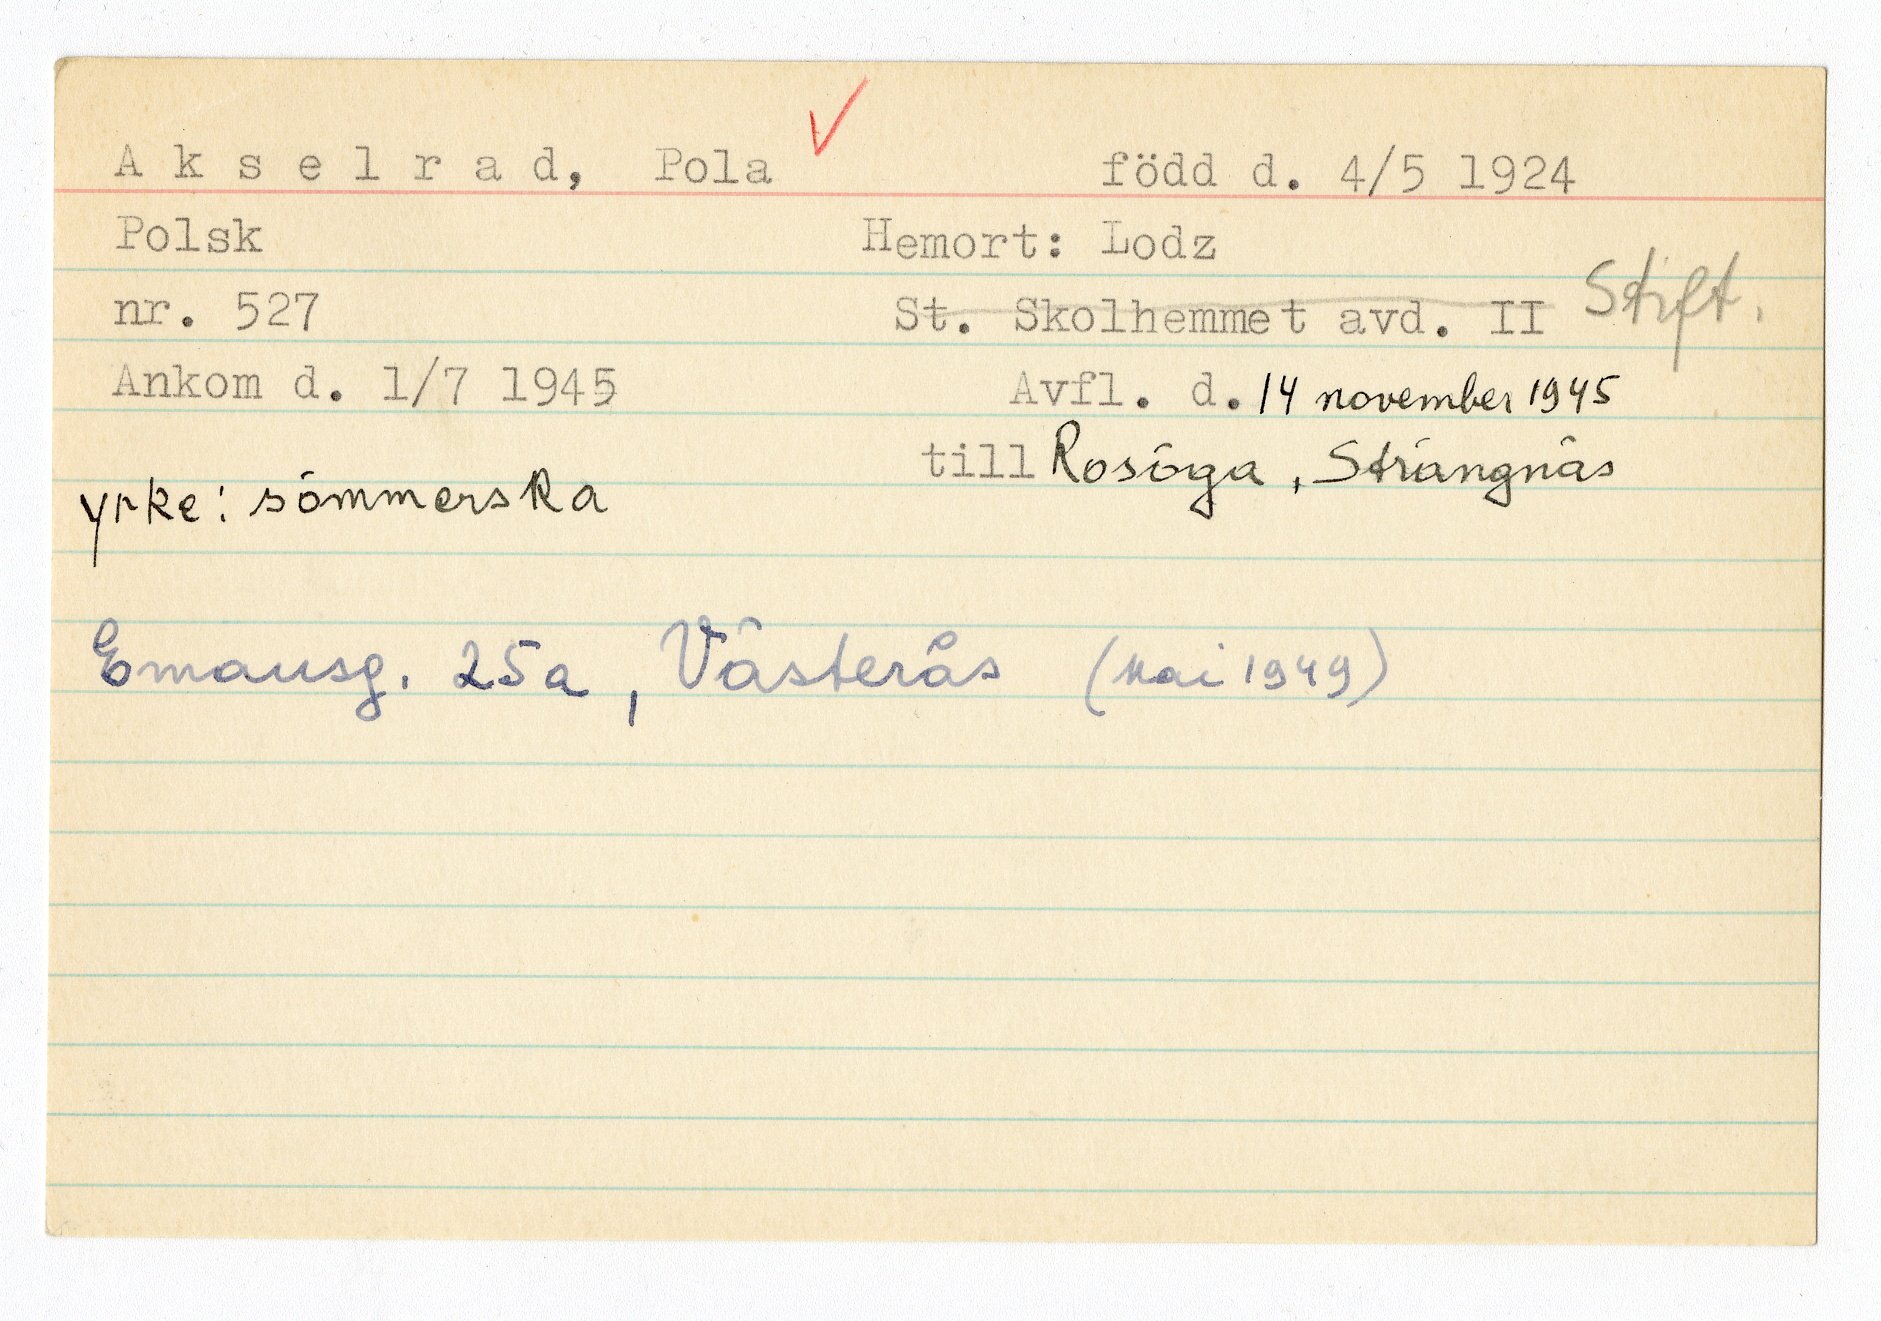 A k s e l r a d, Pola född d. 4/5 1924
Polsk Hemort: Lodz
nr. 527 St. Skolhemmet avd. II Stift.
Ankom d. 1/7 1945 Avfl. d. 14 november 1945
till Rosöga, Strängnäs
yrke: sömmerska
Emausg. 25a, Västerås (Mai 1949)